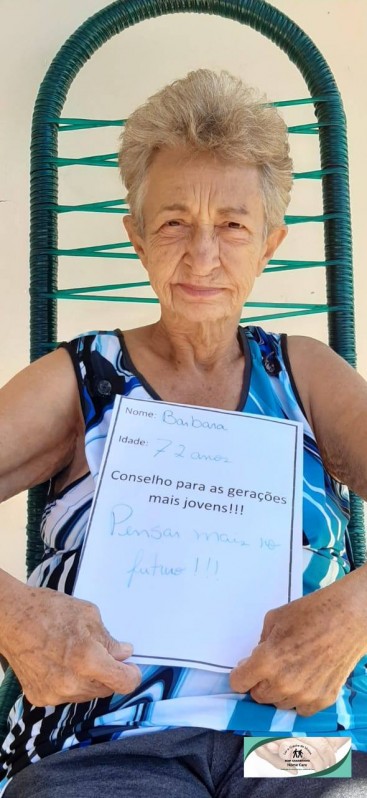 Nome: Barbara
Idade: 72 anos
Conselho para as gerações
mais jovens!!!
Pensar mais no
futuro!!!
Home Care